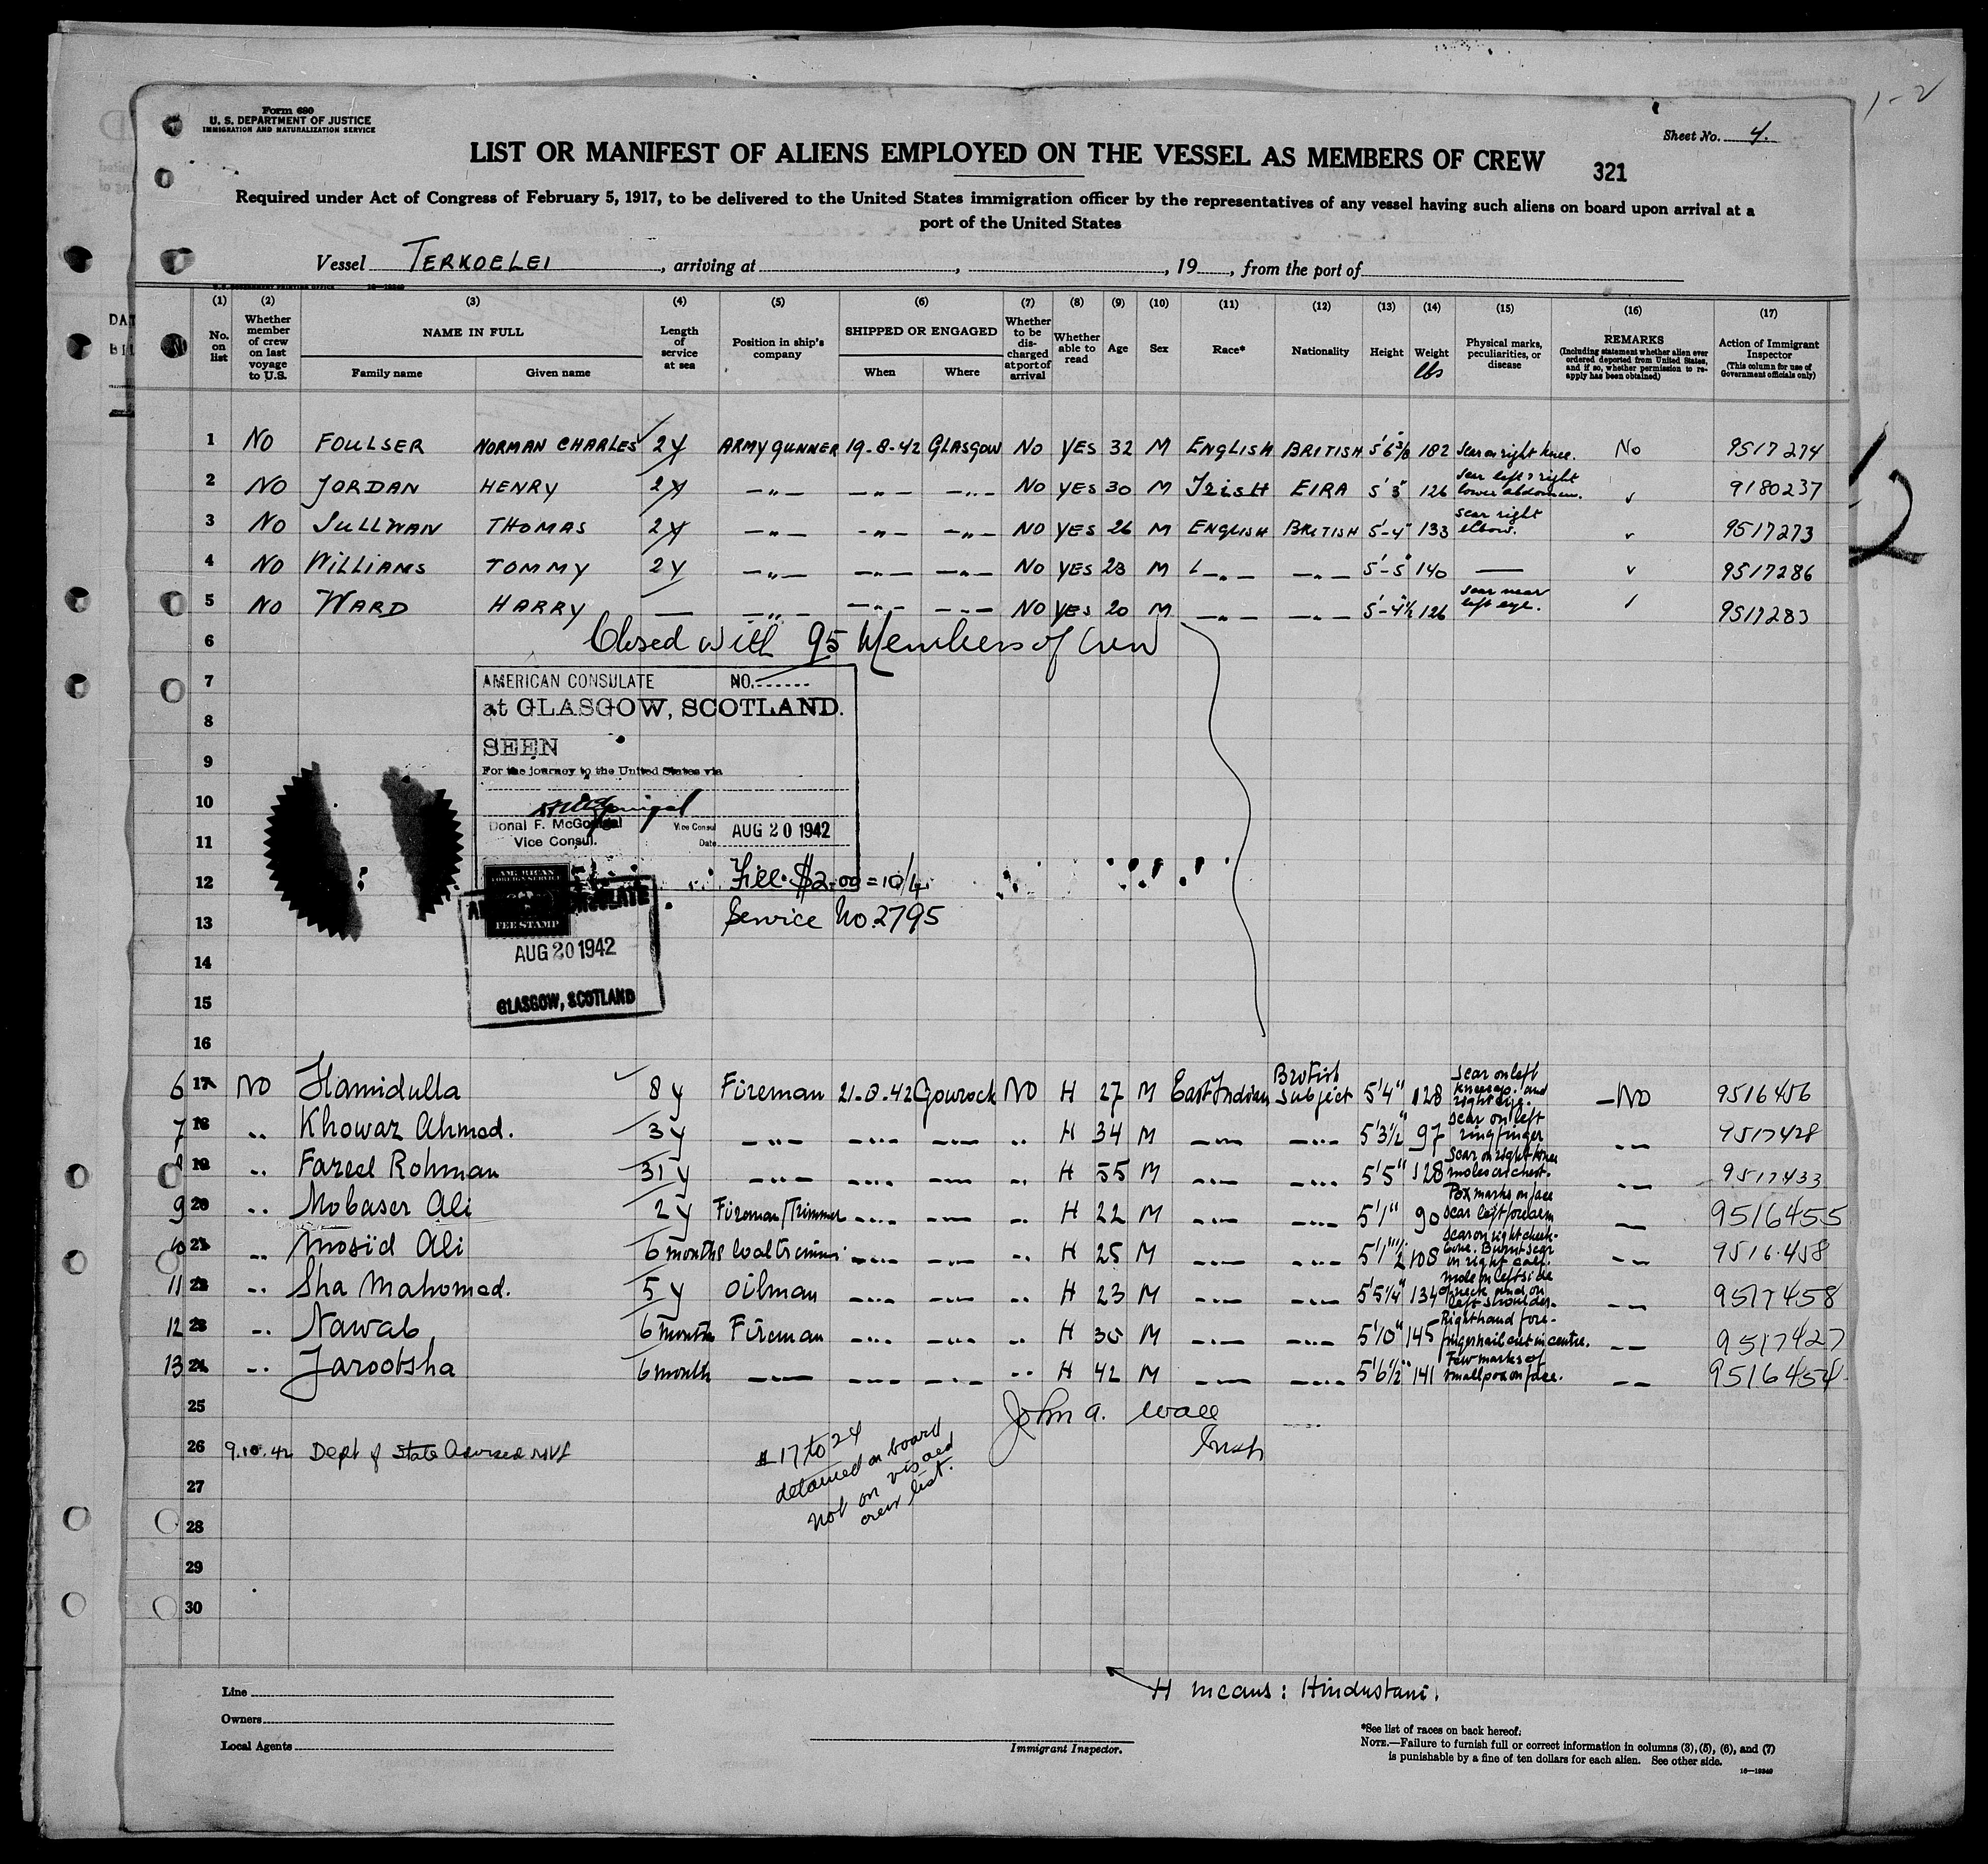 1-2
Form 680
U. S. DEPARTMENT OF JUSTICE
IMMIGRATION AND NATURALIZATION SERVICE
Sheet No. 4.
LIST OR MANIFEST OF ALIENS EMPLOYED ON THE VESSEL AS MEMBERS OF CREW
321
Required under Act of Congress of February 5, 1917, to be delivered to the United States immigration officer by the representatives of any vessel having such aliens on board upon arrival at a
port of the United States
Vessel TERKOELEI, arriving at , , 19 , from the port of
(1) (2) (3) (4) (5) (6) (7) (8) (9) (10) (11) (12) (13) (14) (15) (16) (17)
No. on list
Whether member of crew on last voyage to U.S.
NAME IN FULL
Family name Given name
Length of service at sea
Position in ship's company
SHIPPED OR ENGAGED
When Where
Whether to be discharged at port of arrival
Whether able to read
Age
Sex
Race*
Nationality
Height
Weight lbs
Physical marks, peculiarities, or disease
REMARKS
(Including statement whether alien ever ordered deported from United States, and if so, whether permission to reapply has been obtained)
Action of Immigrant Inspector
(This column for use of Government officials only)
1 NO FOULSER NORMAN CHARLES 2 Y ARMY GUNNER 19-8-42 GLASGOW NO YES 32 M ENGLISH BRITISH 5'6 3/8 182 Scar on right knee. No 9517274
2 NO JORDAN HENRY 2 Y —"— —"— —"— NO YES 30 M IRISH EIRA 5'3" 126 scar left & right lower abdomen. 9180237
3 NO SULLIVAN THOMAS 2 Y —"— —"— —"— NO YES 26 M ENGLISH BRITISH 5'-4" 133 scar right elbow. 9517273
4 NO WILLIAMS TOMMY 2 Y —"— —"— —"— NO YES 23 M —"— —"— 5'-5" 140 — 9517286
5 NO WARD HARRY — —"— —"— —"— NO YES 20 M —"— —"— 5'-4½ 126 scar near left eye. 9517283
6 Closed with 95 Members of Crew
12
7
8
9
10
11
12
13
14
15
16
AMERICAN CONSULATE NO.
at GLASGOW, SCOTLAND.
SEEN
For the journey to the United States via
Donal F. McGonigal
Vice Consul.
Vice Consul
Date AUG 20 1942
Fee: $2.00 = 10/4
Service No. 2795
AMERICAN
FOREIGN SERVICE
FEE STAMP
AMERICAN CONSULATE
AUG 20 1942
GLASGOW, SCOTLAND
6 17 NO Hamidulla 8 y Fireman 21-8-42 Gourock NO H 27 M East Indian British Subject 5'4" 128 Scar on left kneecap. and right eye. —NO 9516456
7 18 " Khowaz Ahmad. 3 y —"— —"— —"— " H 34 M —"— —"— 5'3½" 97 Scar on left ring finger —"— 9517428
8 19 " Fazeel Rohman 31 y —"— —"— —"— " H 55 M —"— —"— 5'5" 128 Scar on right knee moles on chest. —"— 9517433
9 20 " Mobaser Ali 2 y Fireman/Trimmer —"— —"— " H 22 M —"— —"— 5'1" 90 Pox marks on face scar left forearm —"— 9516455
10 21 " Mosid Ali 6 months Coaltrimmer —"— —"— " H 25 M —"— —"— 5'1½" 108 Scar on right cheek-bone. Burnt scar on right calf. —"— 9516458
11 22 " Sha Mahomed. 5 y Oilman —"— —"— " H 23 M —"— —"— 5'5¼" 134 mole on left side of neck and on left shoulder. —"— 9517458
12 23 " Nawab 6 months Fireman —"— —"— " H 30 M —"— —"— 5'10" 145 Right hand fore-fingernail cut in centre. —"— 9517427
13 24 " Jarootsha 6 month —"— —"— —"— " H 42 M —"— —"— 5'6½" 141 Few marks of smallpox on face. —"— 9516454
25 John A. Wall
Insp
26 9.10.42 Dept of State advised NVL
# 17 to 24
detained on board
not on visaed
crew list.
27
28
29
30
H means: Hindustani.
Line
Owners
Local Agents
Immigrant Inspector.
*See list of races on back hereof.
NOTE.—Failure to furnish full or correct information in columns (3), (5), (6), and (7)
is punishable by a fine of ten dollars for each alien. See other side.
16—18240